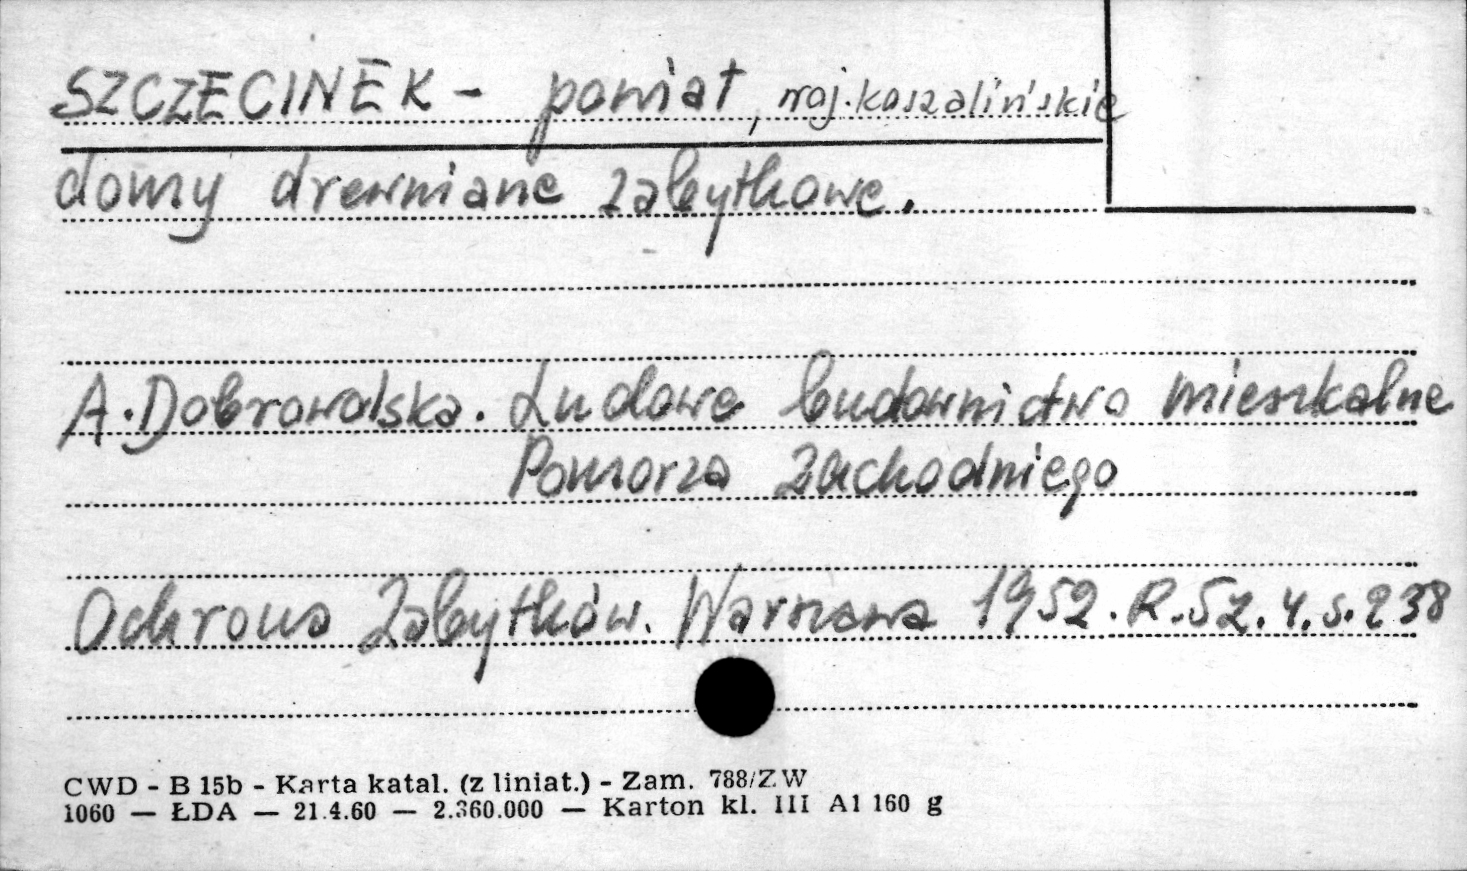 SZCZECINEK - powiat, woj. koszalińskie
domy drewniane zabytkowe.
A. Dobrowolska. Ludowe budownictwo mieszkalne
Pomorza Zachodniego
Ochrona Zabytków. Warszawa 1952. R. 5 z. 4. s. 238
CWD - B 15b - Karta katal. (z liniat.) - Zam. 788/ZW
1060 — ŁDA — 21.4.60 — 2.360.000 — Karton kl. III A1 160 g